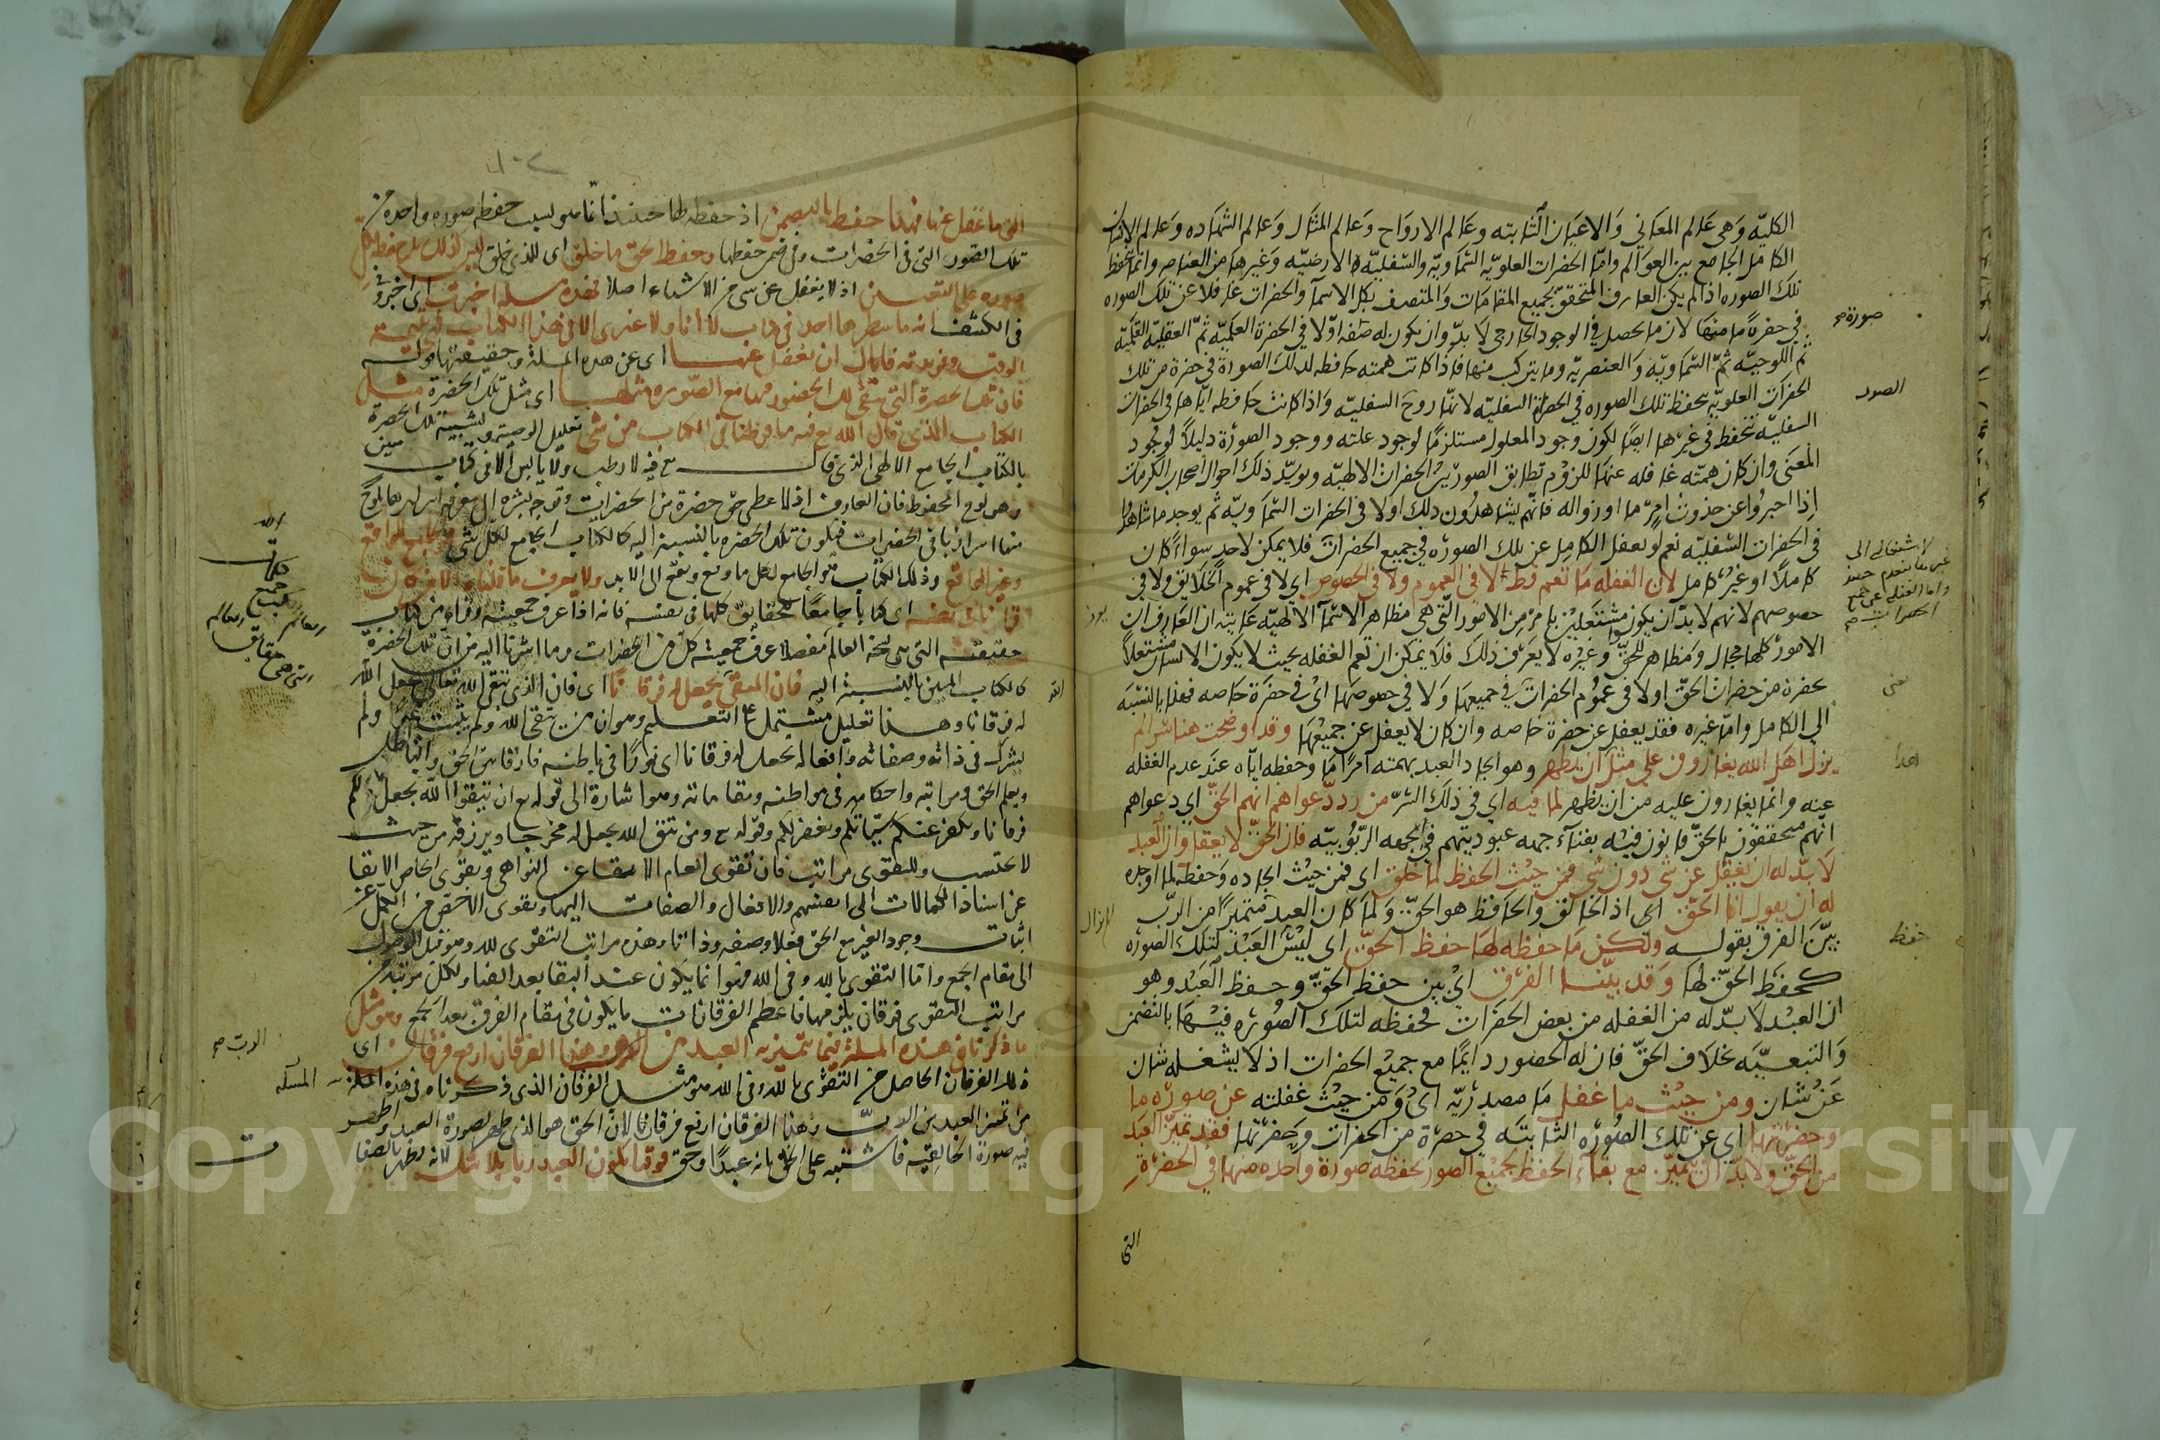 الكليّه وَهى عَالم المعَاني وَالاعيَان الثابته وعَالم الارواح وَعالم المثَال وَعالم الشهاده وَعالم الانسان
الكامل الجامع بين العوالم وامّا الحضرات العلويّه السماويّه والسّفليّه الارضيّه وَغيرها من العناصر وانما تحفظ
تلك الصوره اذا لم يكن العارف المتحقق بجميع المقامَات وَالمتصف بكل الاسمآ والحضرات غافلا عن تلك الصوره
في حضرةٍ ما منها لان ما يحصل في الوجود الخارجى لا بدّ وان يكون له صورة اوّلا في الحضرة العلميّه ثمّ العقليّه القلميّة
ثم اللوحيّه ثمّ السّماويّه وَالعنصريّه وما يتركب منها فاذا كانت همته حافظه لتلك الصورة في حضرة من تلك
الحضرَات العلويّه ينحفظ تلك الصوره في الحضرات السفليّه لانها روحَ السفليّه وَاذا كانت حافظه ايّاها في الحضرات
السفليّه تنحفظ في غيرها ايضًا لكون وجود المعلول مستلزمًا لوجود علته ووجود الصورة دليلًا لوجود
المعنَى وان كان همّته غافله عنهَا للزوُم تطابق الصور بين الحضرات الالهيّه ويؤيّد ذلك احوال اصحاب الكرمات
اذا اخبروُا عن حدوث امرٍ ما او زواله فانهّم يشاهدُون ذلك اولا في الحضرات السّماويّه ثم يوجد ما شاهدوا
في الحضرات السّفليّه نعم لو يغفل الكامل عن تلك الصورَه في جميع الحضراتَ فلا يمكن لاحدٍ سواءً كان
كاملاً او غيرَ كامل لان الغفله مَا تعم قط لا في العموم ولا في الخصوص اي لا في عموم الخلايق ولا في
خصوصهم لانهم لا بدّ ان يكونوا مشتغلين بامر من الامور الّتي هى مظاهر الاسمآ الالهيّه غايته ان العَارف ان
الامورَ كلها مجالٍ ومظاهر للحقّ وغيرُه لا يَعرف ذلك فلا يمكن ان تعم الغفله بحيث لا يكون الانسان مشتغلاً
بحضرة من حضرات الحقّ اولا في عمُوم الحضراتَ في جميعهَا وَلا في خصوصهَا اىْ في حضرَة خاصه فهذا بالنسبَة
الي الكامل وامّا غيره فقد يغفل عن حضرة خاصه وان كان لا يغفل عن جميعُهَا وقد اوضحت هنا سرًا لم
يزل اهل الله يغارون علي مثل ان يظهر وهو ايجاد العبد بهمته امرًا مَا وحفظه ايّاه عنَد عدم الغفله
عنه وانما يغارون عليه من ان يظهر لما فيه اي في ذلك السّر من ردّ دعواهم انهم الحقّ اي دعواهم
انهّم متحققون بالحقّ فانون فيْه بفنآء جهه عبوديتهم في الجهه الربُوبيّه فان الحقّ لا يغفل وان العْبد
لَا بدّ له ان يغفل عن شى دون شى فمن حيْث الحفظ لما خلق اى فمن حيْث ايجاده وَحفظه لما اوجده
له ان يقول انا الحقّ اى اذ الخالق والحَافظ هو الحقّ وَلمّا كان العبد متميّزًا من الربّ
بيّنَ الفرق بقوله ولكن مَا حفظه لهَا حفظ الحقّ اى ليْسَ العَبْد لتلك الصوره
كحفَظ الحقّ لها وَقد بيّنا الفرق ايْ بيْن حفظ الحَقّ وحفظ العَبْد وهو
ان العبْد لا بدّ له من الغفله من بعض الحضرَات فحفظه لتلكَ الصُوره فيْهَا بالتضّمن
وَالتبعيّه بخلاف الحقّ فان له الحضور دايمًا مع جميعْ الحضرات اذ لا يشغله شان
عَنْ شان ومن حيْث ما غفل مَا مصدريّه اىْ وَمن حيْث غفلته عن صورَه ما
وحضرتها اي عن تلك الصُوره الثابته في حضرَة من الحضرات وَحضرتها فقد تميّز العَبد
من الحقّ ولا بدّ ان يتميّز مع بقآء الحفظ لجميْع الصور بحفظه صورَة وَاحده منها في الحضرَة
التى
صورة صح
الصور
لاشتغاله الى
الحضرات صح
يعنى
حفظ
التى ما غفل عنها فهذا حفظ بالتضمن اذ حفظه لها حينئذ انما هو بسبب حفظه صوره واحده من
تلك الصور التى فى الحضرات وفى ضمن حفظها وحفظ الحق ما خلق اى للذى خلق ليس كذلك بل حفظه لكل
صوره على التعيين اذ لا يغفل عن شى من الاشياء اصلا فهذه مسئلة اخبرت اى اخبرت
فى الكشف انه ما سطرها احد فى كتاب لا انا ولا غيرى الا فى هذا الكتاب فهى يتيمة
الوقت وفريدته فاياك ان تغفل عنها اى عن هذه المسئلة وحقيقتها قوله
فان تلك الحضرة التى يبقى لك الحضور فيها مع الصّورة مثلها اى مثل تلك الحضرة مثل
الكتاب الذى قال الله تع فيه ما فرطنا فى الكتاب من شى تعليل الوصية وتشبيه تلك الحضرة
بالكتاب الجامع الالهى الذى قال تع فيه لا رطب ولا يابس الا فى كتاب مبين
وهو لوح المحفوظ فان العارف اذا اعطى حق حضرة من الحضرات وتوجه بسره الى معرفة اسرارها يلوح
منها اسرار باقى الحضرات فيكون تلك الحضره بالنسبة اليه كالكتاب الجامع لكل شى فهو الجامع للواقع
وغير الواقع وذلك الكتاب هو الجامع لكل ما وقع ويقع الى الابد ولا يعرف ما قلناه الا من كان
قرآنا فى نفسه اى كتابا جامعا للحقايق كلها فى نفسه فانه اذا عرف جمعيته وقراء من كتاب
حقيقته التى هى نسخة العالم مفصلا عرف جمعية كل من الحضرات وما اشرنا اليه من ان تلك الحضرة
كالكتاب المبين بالنسبة اليه فان المتقى الله يجعل له فرقانا اى فان الذى يتقى الله تعالى يجعل الله
له فرقانا وهذا تعليل مشتمل على التعليم وهو ان من يتقى الله ولم يثبت غيره ولم
يشرك فى ذاته وصفاته وافعاله يجعل له فرقانا اى نورًا فى باطنه فارقا بين الحق والباطل
ويعلم الحق ومراتبه واحكامه فى مواطنه ومقاماته وهو اشارة الى قوله تع ان تتقوا الله يجعل لكم
فرقانا ويكفر عنكم سيّئاتكم ويغفر لكم وقوله تع ومن يتق الله يجعل له مخرجا ويرزقه من حيث
لا يحتسب وللتقوى مراتب فان تقوى العام الاتقاء عن النواهى وتقوى الخاص الاتقاء
عن اسناد الكمالات الى انفسهم والافعال والصفات اليها وتقوى الاخص من الكمل عن
اثبات وجود الغير مع الحق فعلا وصفة وذاتا وهذه مراتب التقوى لله وهو قبل الوصول
الى مقام الجمع وامّا التقوى بالله وفى الله فهو انما يكون عند البقا بعد الفنا ولكل مرتبة من
مراتب التقوى فرقان يلزمها فاعظم الفرقانات ما يكون فى مقام الفرق بعد الجمع وهو مثل
ما ذكرنا فى هذه المسئلة فيما يتميز به العبد من الرب وهذا الفرقان ارفع فرقان اى
ذلك الفرقان الحاصل من التقوى بالله وفى الله هو مثل الفرقان الذى ذكرناه فى هذه المسئلة
من تميز العبد من الربّ وهذا الفرقان ارفع فرقان لانّ الحق هو الذى ظهر بصورة العبد واظهر
فيه صورة الخالقية فاشتبه على الخلق بانه عبد او حق فوقتا يكون العبد ربا بلا شك لانه يظهر بالصفات
الله
جميع
العالم
حقايق
التى هى
الرب صح
المسئلة